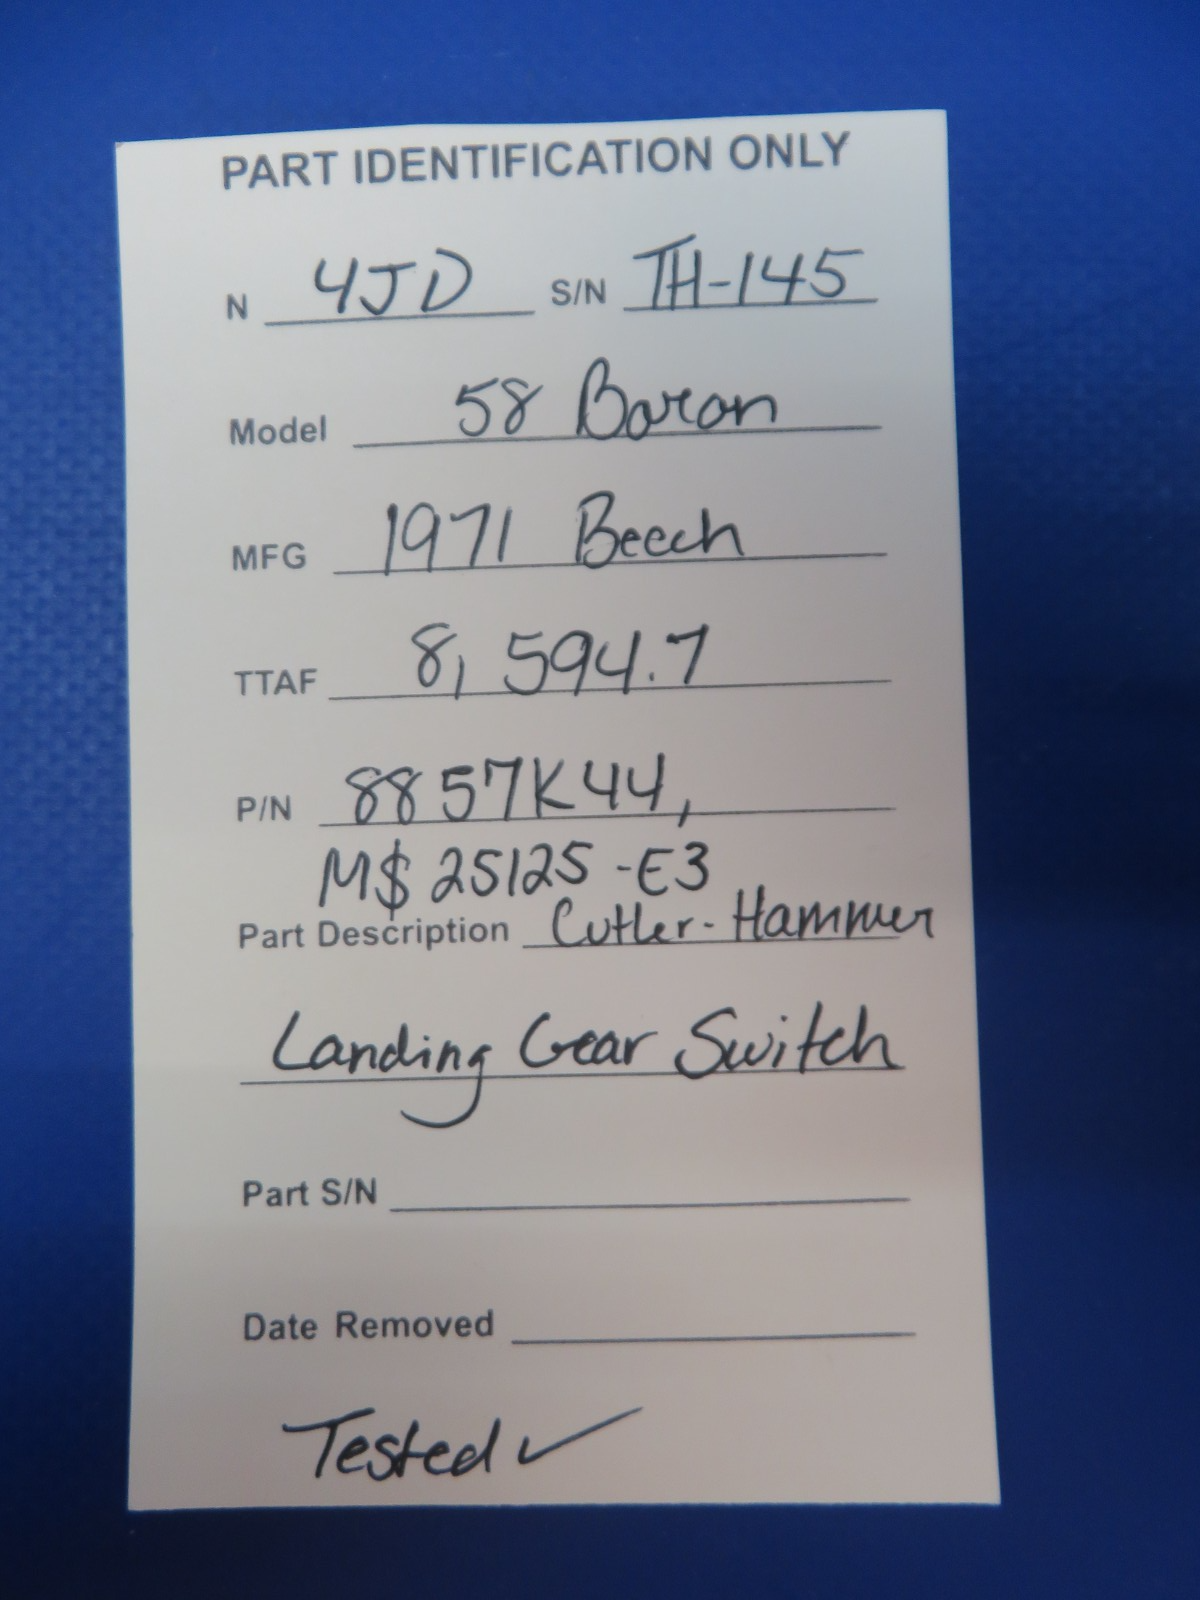 PART IDENTIFICATION ONLY
N 4JD S/N TH-145
Model 58 Baron
MFG 1971 Beech
TTAF 8,594.7
P/N 8857K44,
M$25125-E3
Part Description Cutler-Hammer
Landing Gear Switch
Part S/N
Date Removed
Tested ✓